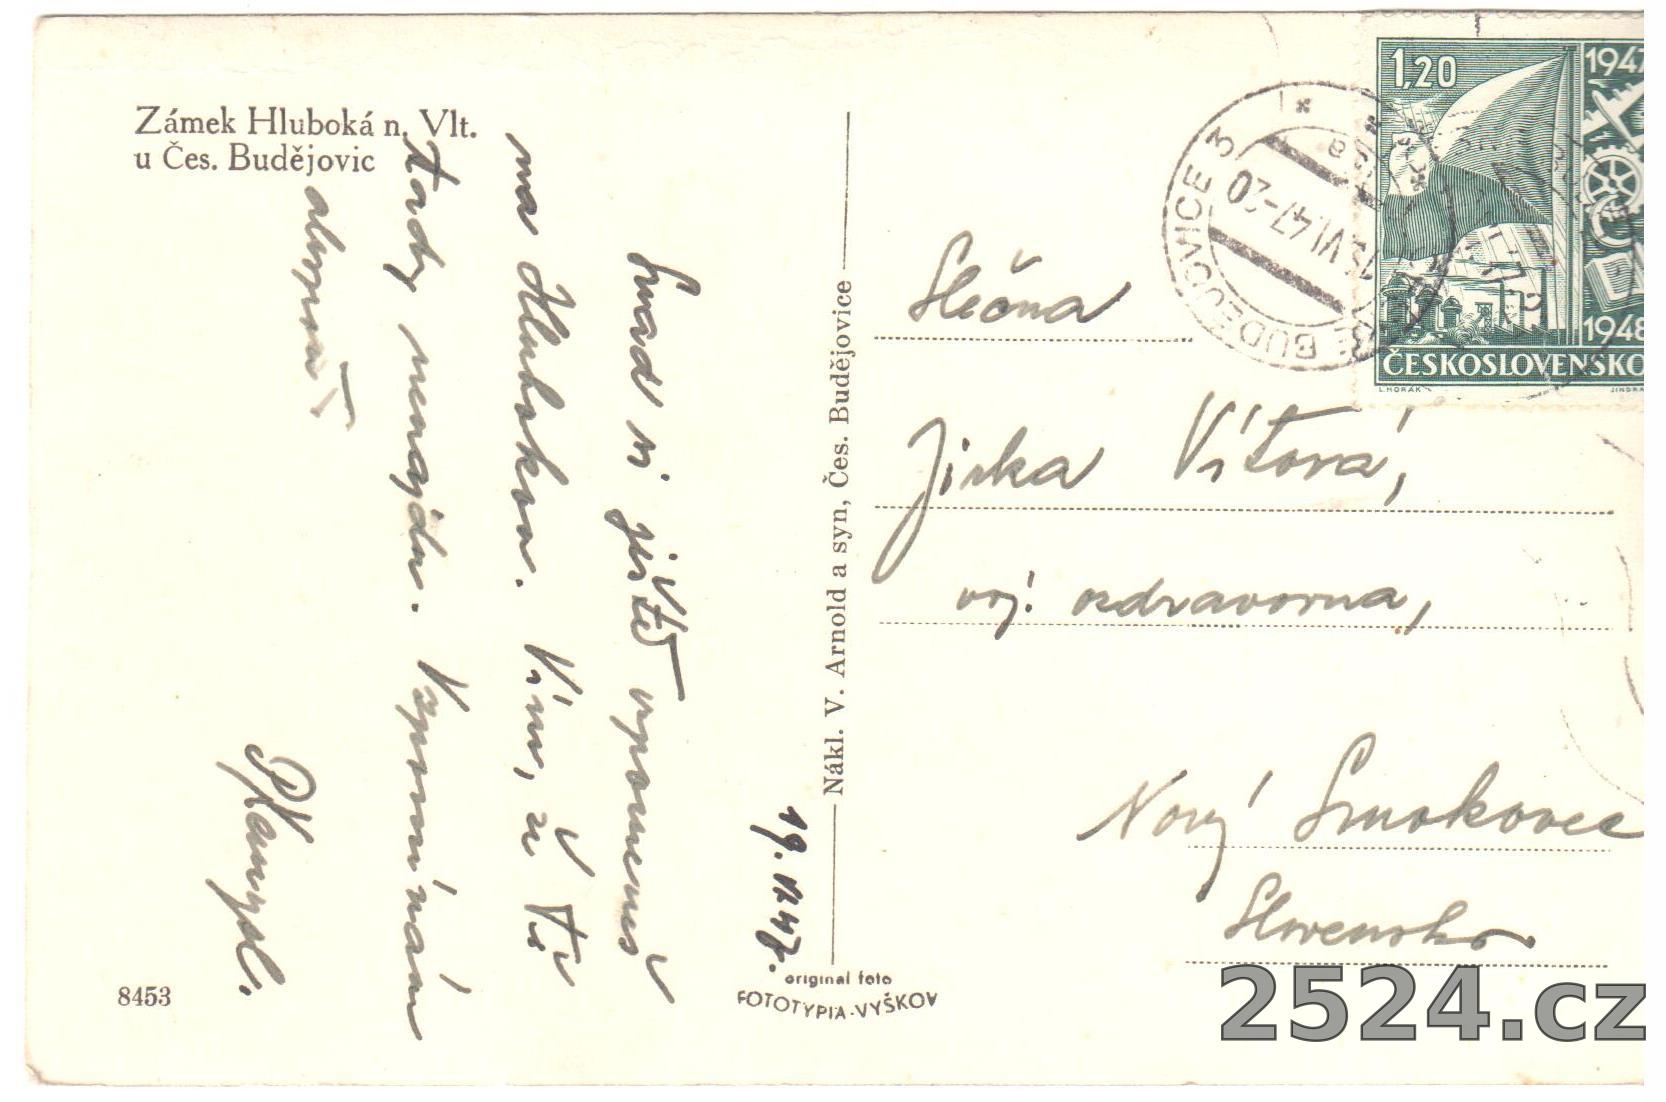 Zámek Hluboká n. Vlt.
u Čes. Budějovic
Snad si ještě vzpomeneš
na Hlubokou. Vím, že Tě
tady nenajdu. Vzpomínám
alespoň
19. VI 47.
8453
Nákl. V. Arnold a syn, Čes. Budějovice
original foto
FOTOTYPIA-VYŠKOV
ČESKÉ BUDĚJOVICE 3
VI 47-20
1,20
1947
1948
ČESKOSLOVENSKO
L. HORÁK
JINDRA
Slečna
Jirka Vítová,
voj. ozdravovna,
Nový Smokovec
Slovensko
2524.cz